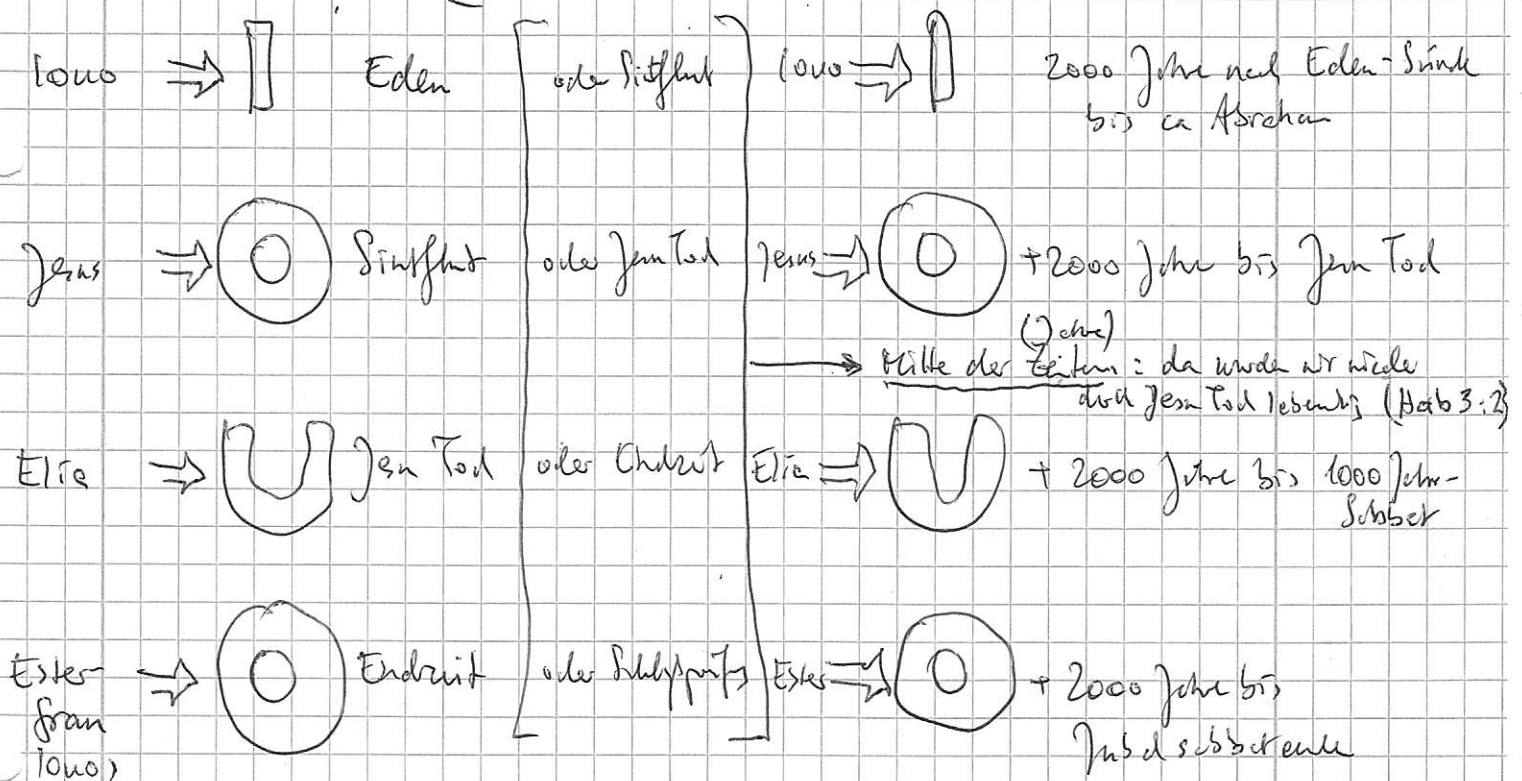 IOUO ⇒ Eden oder Sintflut IOUO ⇒ 2000 Jahre nach Eden-Sünde
bis ca Abraham
Jesus ⇒ Sintflut oder Jesu Tod Jesus ⇒ +2000 Jahre bis Jesu Tod
(Jahre)
→ Mitte der Zeiten: da wurden wir wieder
durch Jesu Tod lebendig (Hab 3:2)
Elia ⇒ Jesu Tod oder Endzeit Elia ⇒ + 2000 Jahre bis 1000 Jahr-
Sabbat
Ester- ⇒ Endzeit oder Schlußprüfg Ester ⇒ + 2000 Jahre bis
frau Jubelsabbatende
IOUOs